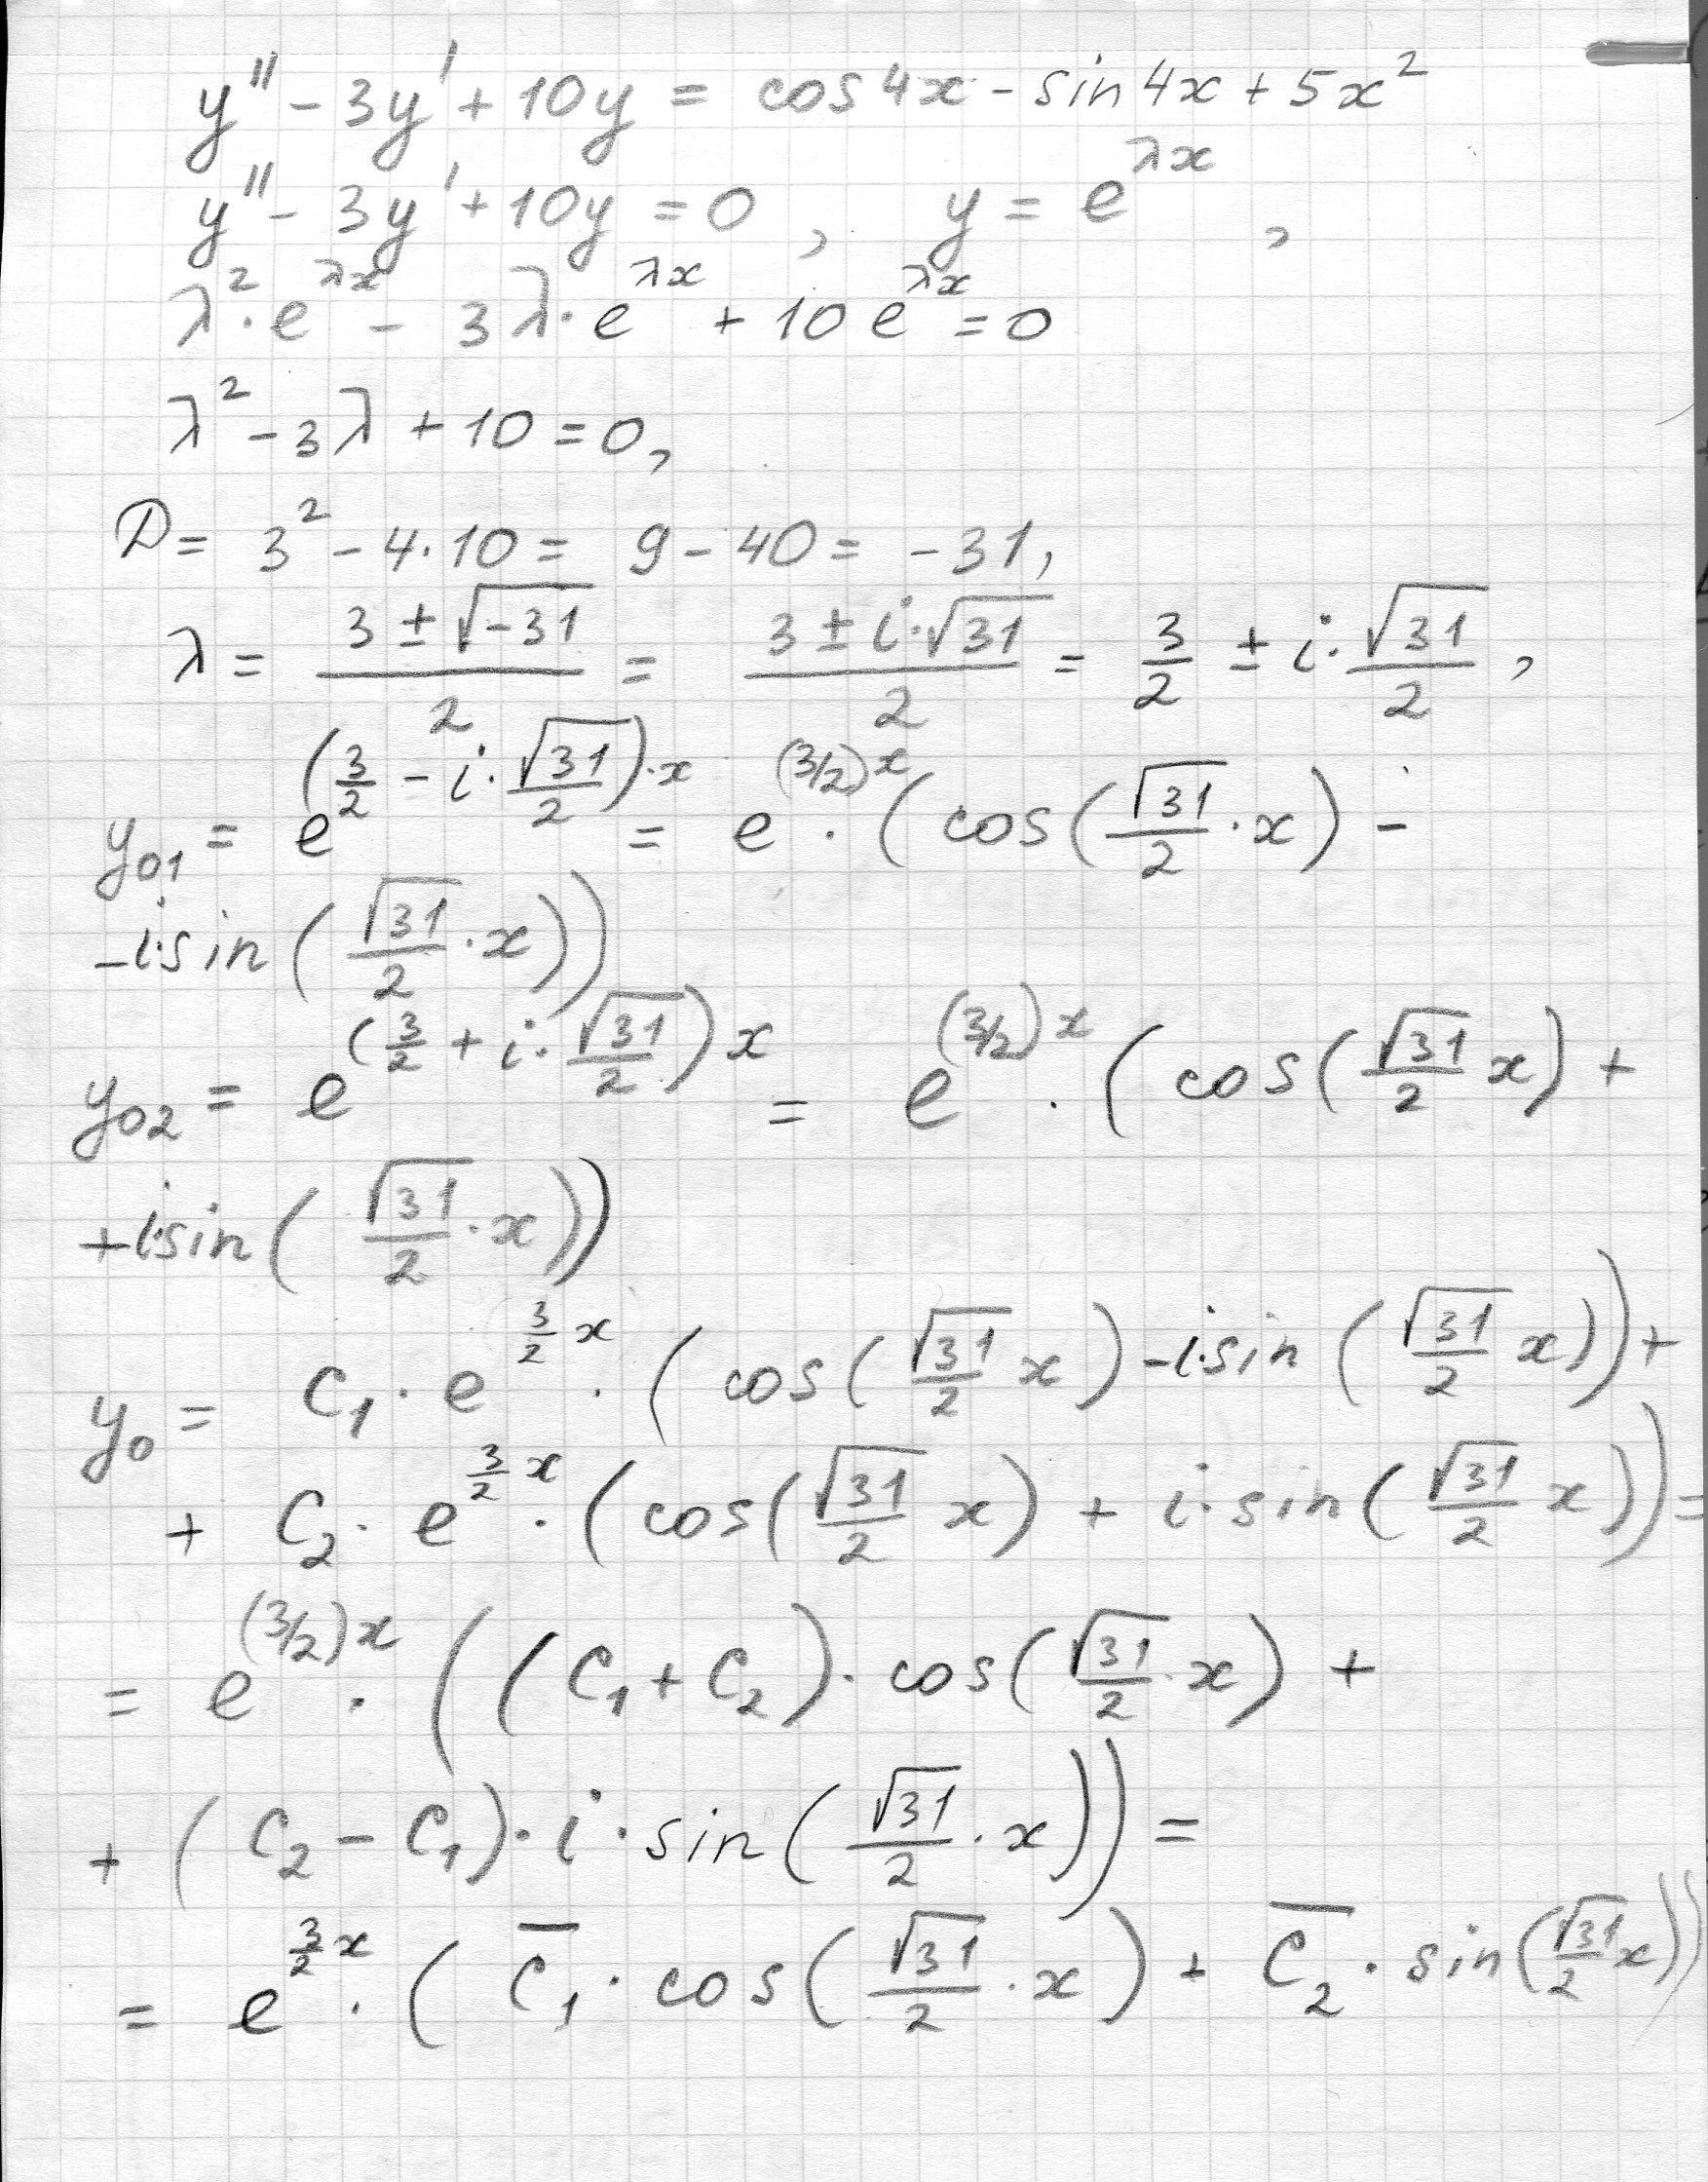 y'' - 3y' + 10y = cos 4x - sin 4x + 5x²
y'' - 3y' + 10y = 0 , y = e^{λx} ,
λ² · e^{λx} - 3λ · e^{λx} + 10 e^{λx} = 0
λ² - 3λ + 10 = 0,
D = 3² - 4 · 10 = 9 - 40 = -31,
λ = \frac{3 ± √{-31}}{2} = \frac{3 ± i · √{31}}{2} = \frac{3}{2} ± i · \frac{√{31}}{2} ,
y_{01} = e^{(\frac{3}{2} - i · \frac{√{31}}{2}) · x} = e^{(3/2)x} · (cos(\frac{√{31}}{2} · x) -
- i · sin(\frac{√{31}}{2} · x))
y_{02} = e^{(\frac{3}{2} + i · \frac{√{31}}{2})x} = e^{(3/2)x} · (cos(\frac{√{31}}{2} x) +
+ i · sin(\frac{√{31}}{2} · x))
y_0 = C_1 · e^{\frac{3}{2}x} · (cos(\frac{√{31}}{2} x) - i · sin(\frac{√{31}}{2} x)) +
+ C_2 · e^{\frac{3}{2}x} · (cos(\frac{√{31}}{2} x) + i · sin(\frac{√{31}}{2} x)) =
= e^{(3/2)x} · ((C_1 + C_2) · cos(\frac{√{31}}{2} · x) +
+ (C_2 - C_1) · i · sin(\frac{√{31}}{2} · x)) =
= e^{\frac{3}{2}x} · (\overline{C_1} · cos(\frac{√{31}}{2} · x) + \overline{C_2} · sin(\frac{√{31}}{2} x))